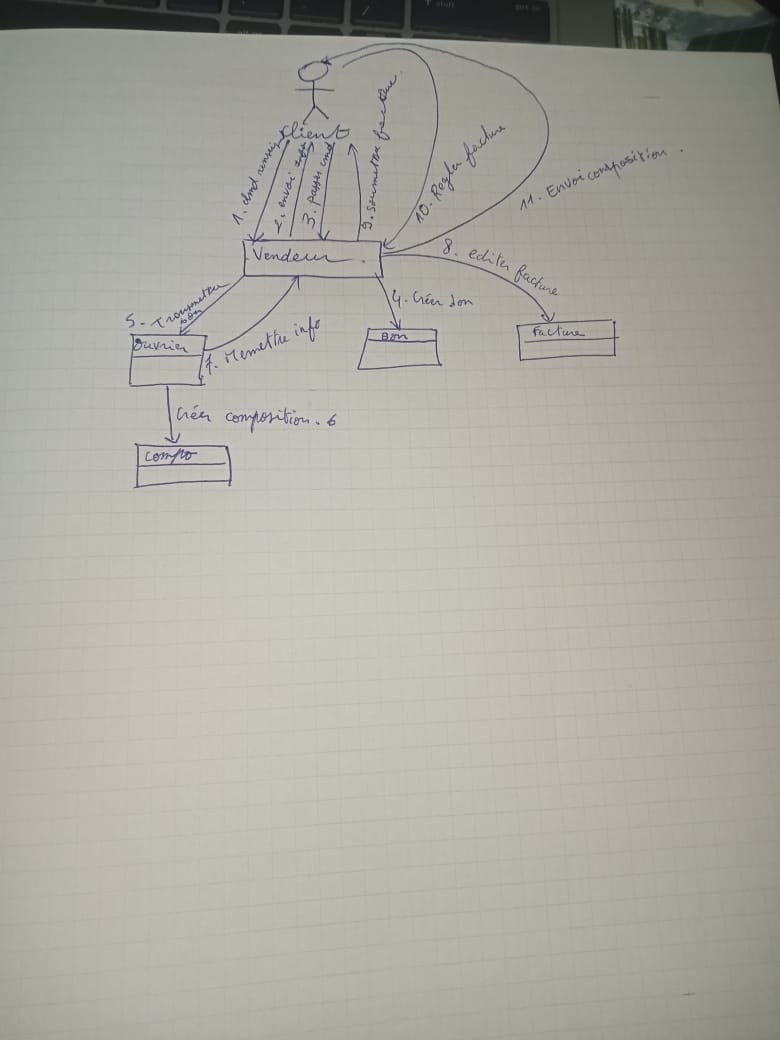 Client
1. dmd renseig
2. envoi info
3. passer cmd
9. soumettre facture
10. Régler facture
11. Envoi composition.
Vendeur.
8. editer facture
5. Transmettre
bon
4. Créer bon
Ouvrier
7. Remettre info
Bon
Facture
Créer composition. 6
Compo